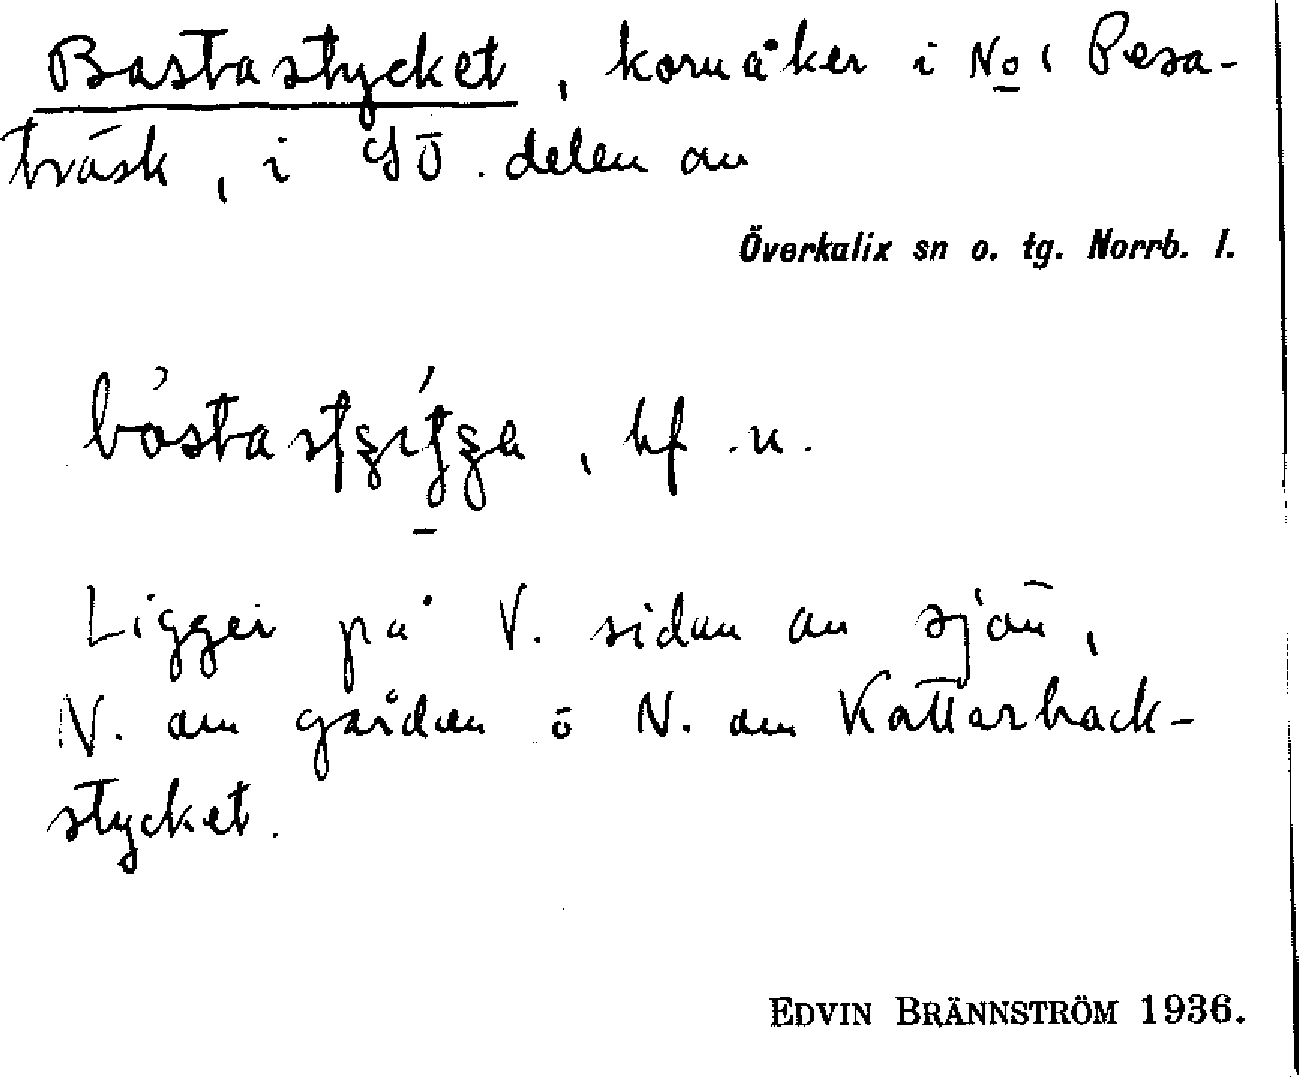 Bastastycket, kornåker i No 1 Pesa-
träsk, i SÖ. delen av
Överkalix sn o. tg. Norrb. l.
, bf. n.
Ligger på V. sidan av sjön,
V. om gården o N. om Kattarback-
stycket.
EDVIN BRÄNNSTRÖM 1936.